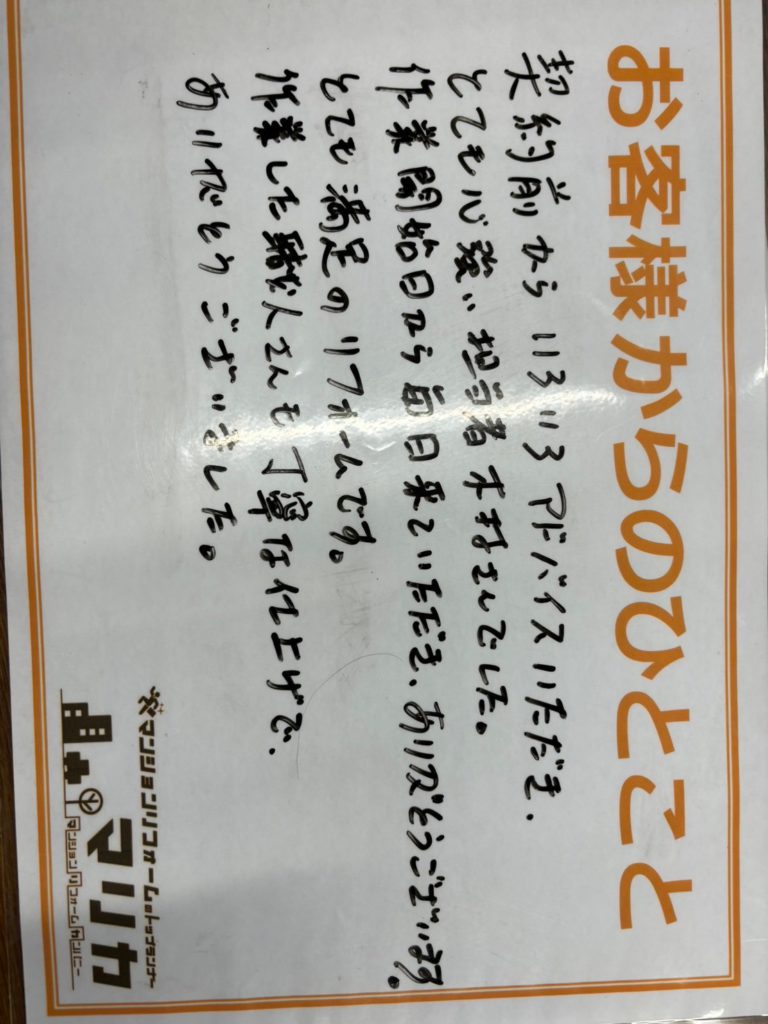 お客様からのひとこと
契約前からいろいろアドバイスいただき、
とても心強い担当者木村さんでした。
作業開始日から毎日来ていただき、ありがとうございます。
とても満足のリフォームです。
作業した職人さんも丁寧な仕上げで、
ありがとうございました。
マンションリフォームのトップランナー
マリカ
マンションリフォームカンパニー